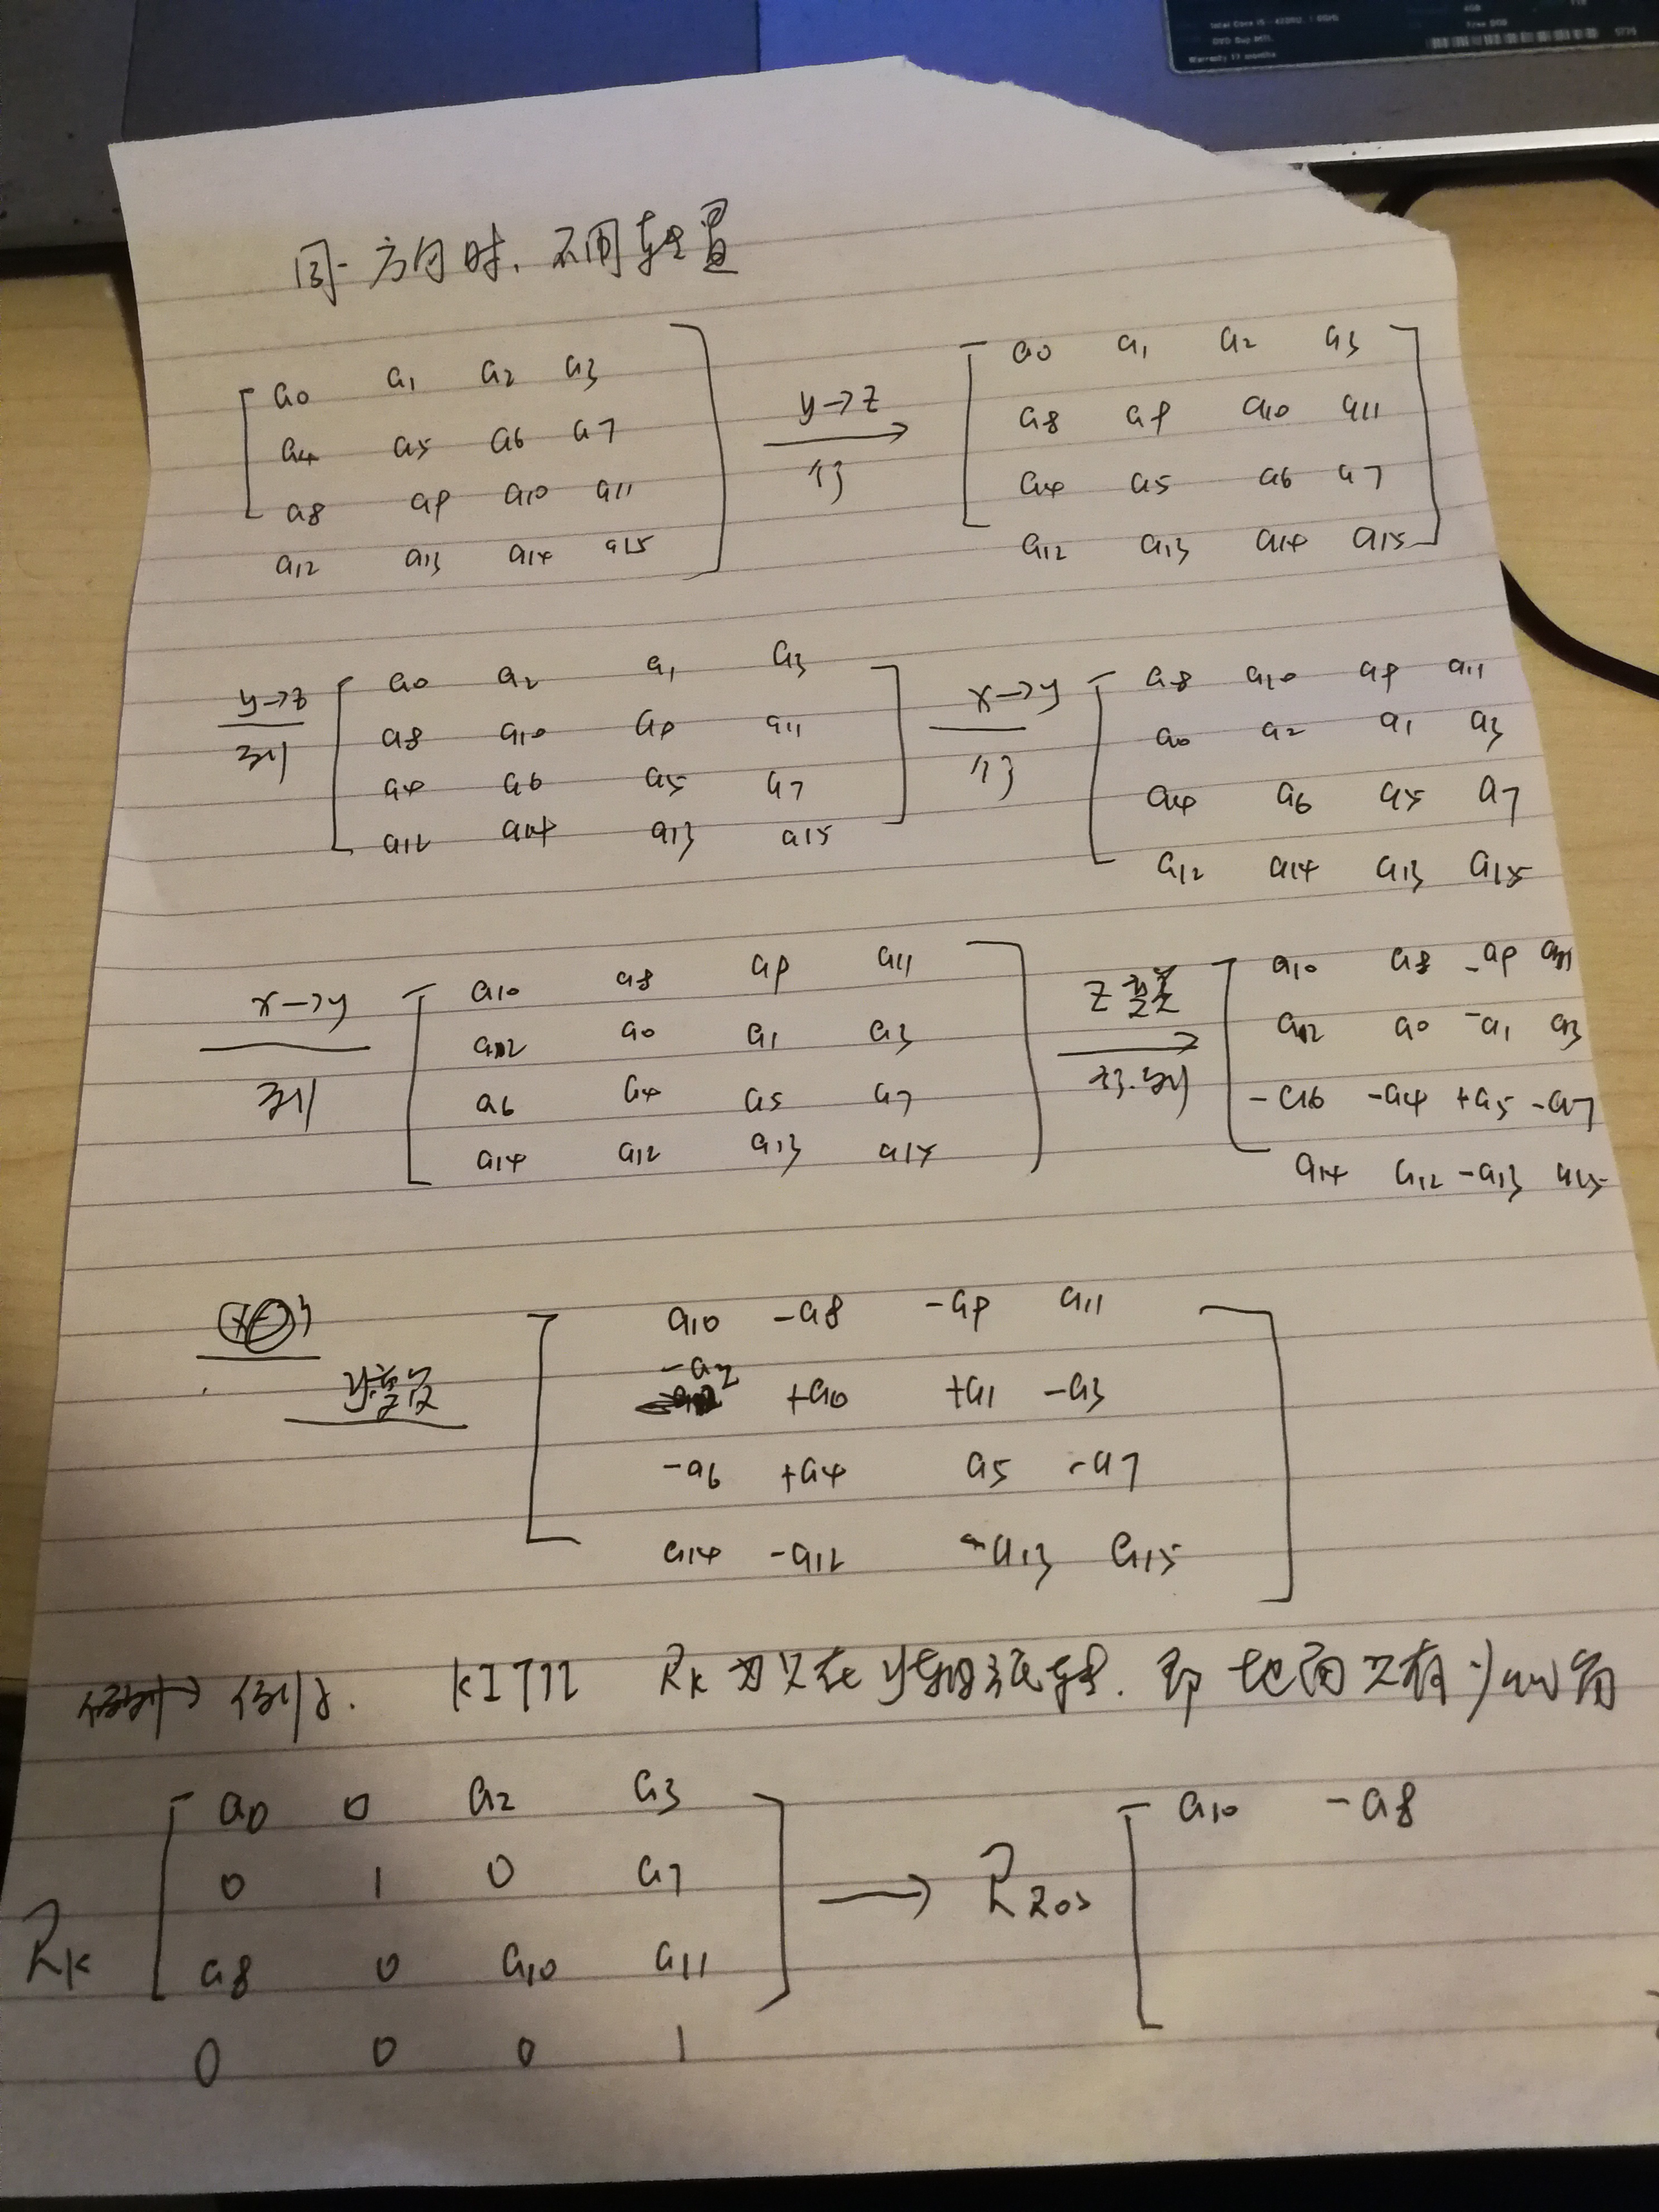 Intel Core i5
Warranty 11 months
4GB
同一方向时. 不用转置
a0 a1 a2 a3
a4 a5 a6 a7
a8 a9 a10 a11
a12 a13 a14 a15
y→z
行
a0 a1 a2 a3
a8 a9 a10 a11
a4 a5 a6 a7
a12 a13 a14 a15
y→z
列
a0 a2 a1 a3
a8 a10 a9 a11
a4 a6 a5 a7
a12 a14 a13 a15
x→y
行
a8 a10 a9 a11
a0 a2 a1 a3
a4 a6 a5 a7
a12 a14 a13 a15
x→y
列
a10 a8 a9 a11
a2 a0 a1 a3
a6 a4 a5 a7
a14 a12 a13 a15
z 变
行.列
a10 a8 -a9 a11
a2 a0 -a1 a3
-a6 -a4 +a5 -a7
a14 a12 -a13 a15
y变反
a10 -a8 -a9 a11
-a2 +a0 +a1 -a3
-a6 +a4 a5 -a7
a14 -a12 -a13 a15
KITTI Rk 为 在 y轴的旋转. 即 地面 有 yaw 角
Rk
a0 0 a2 a3
0 1 0 a7
a8 0 a10 a11
0 0 0 1
→
a10 -a8